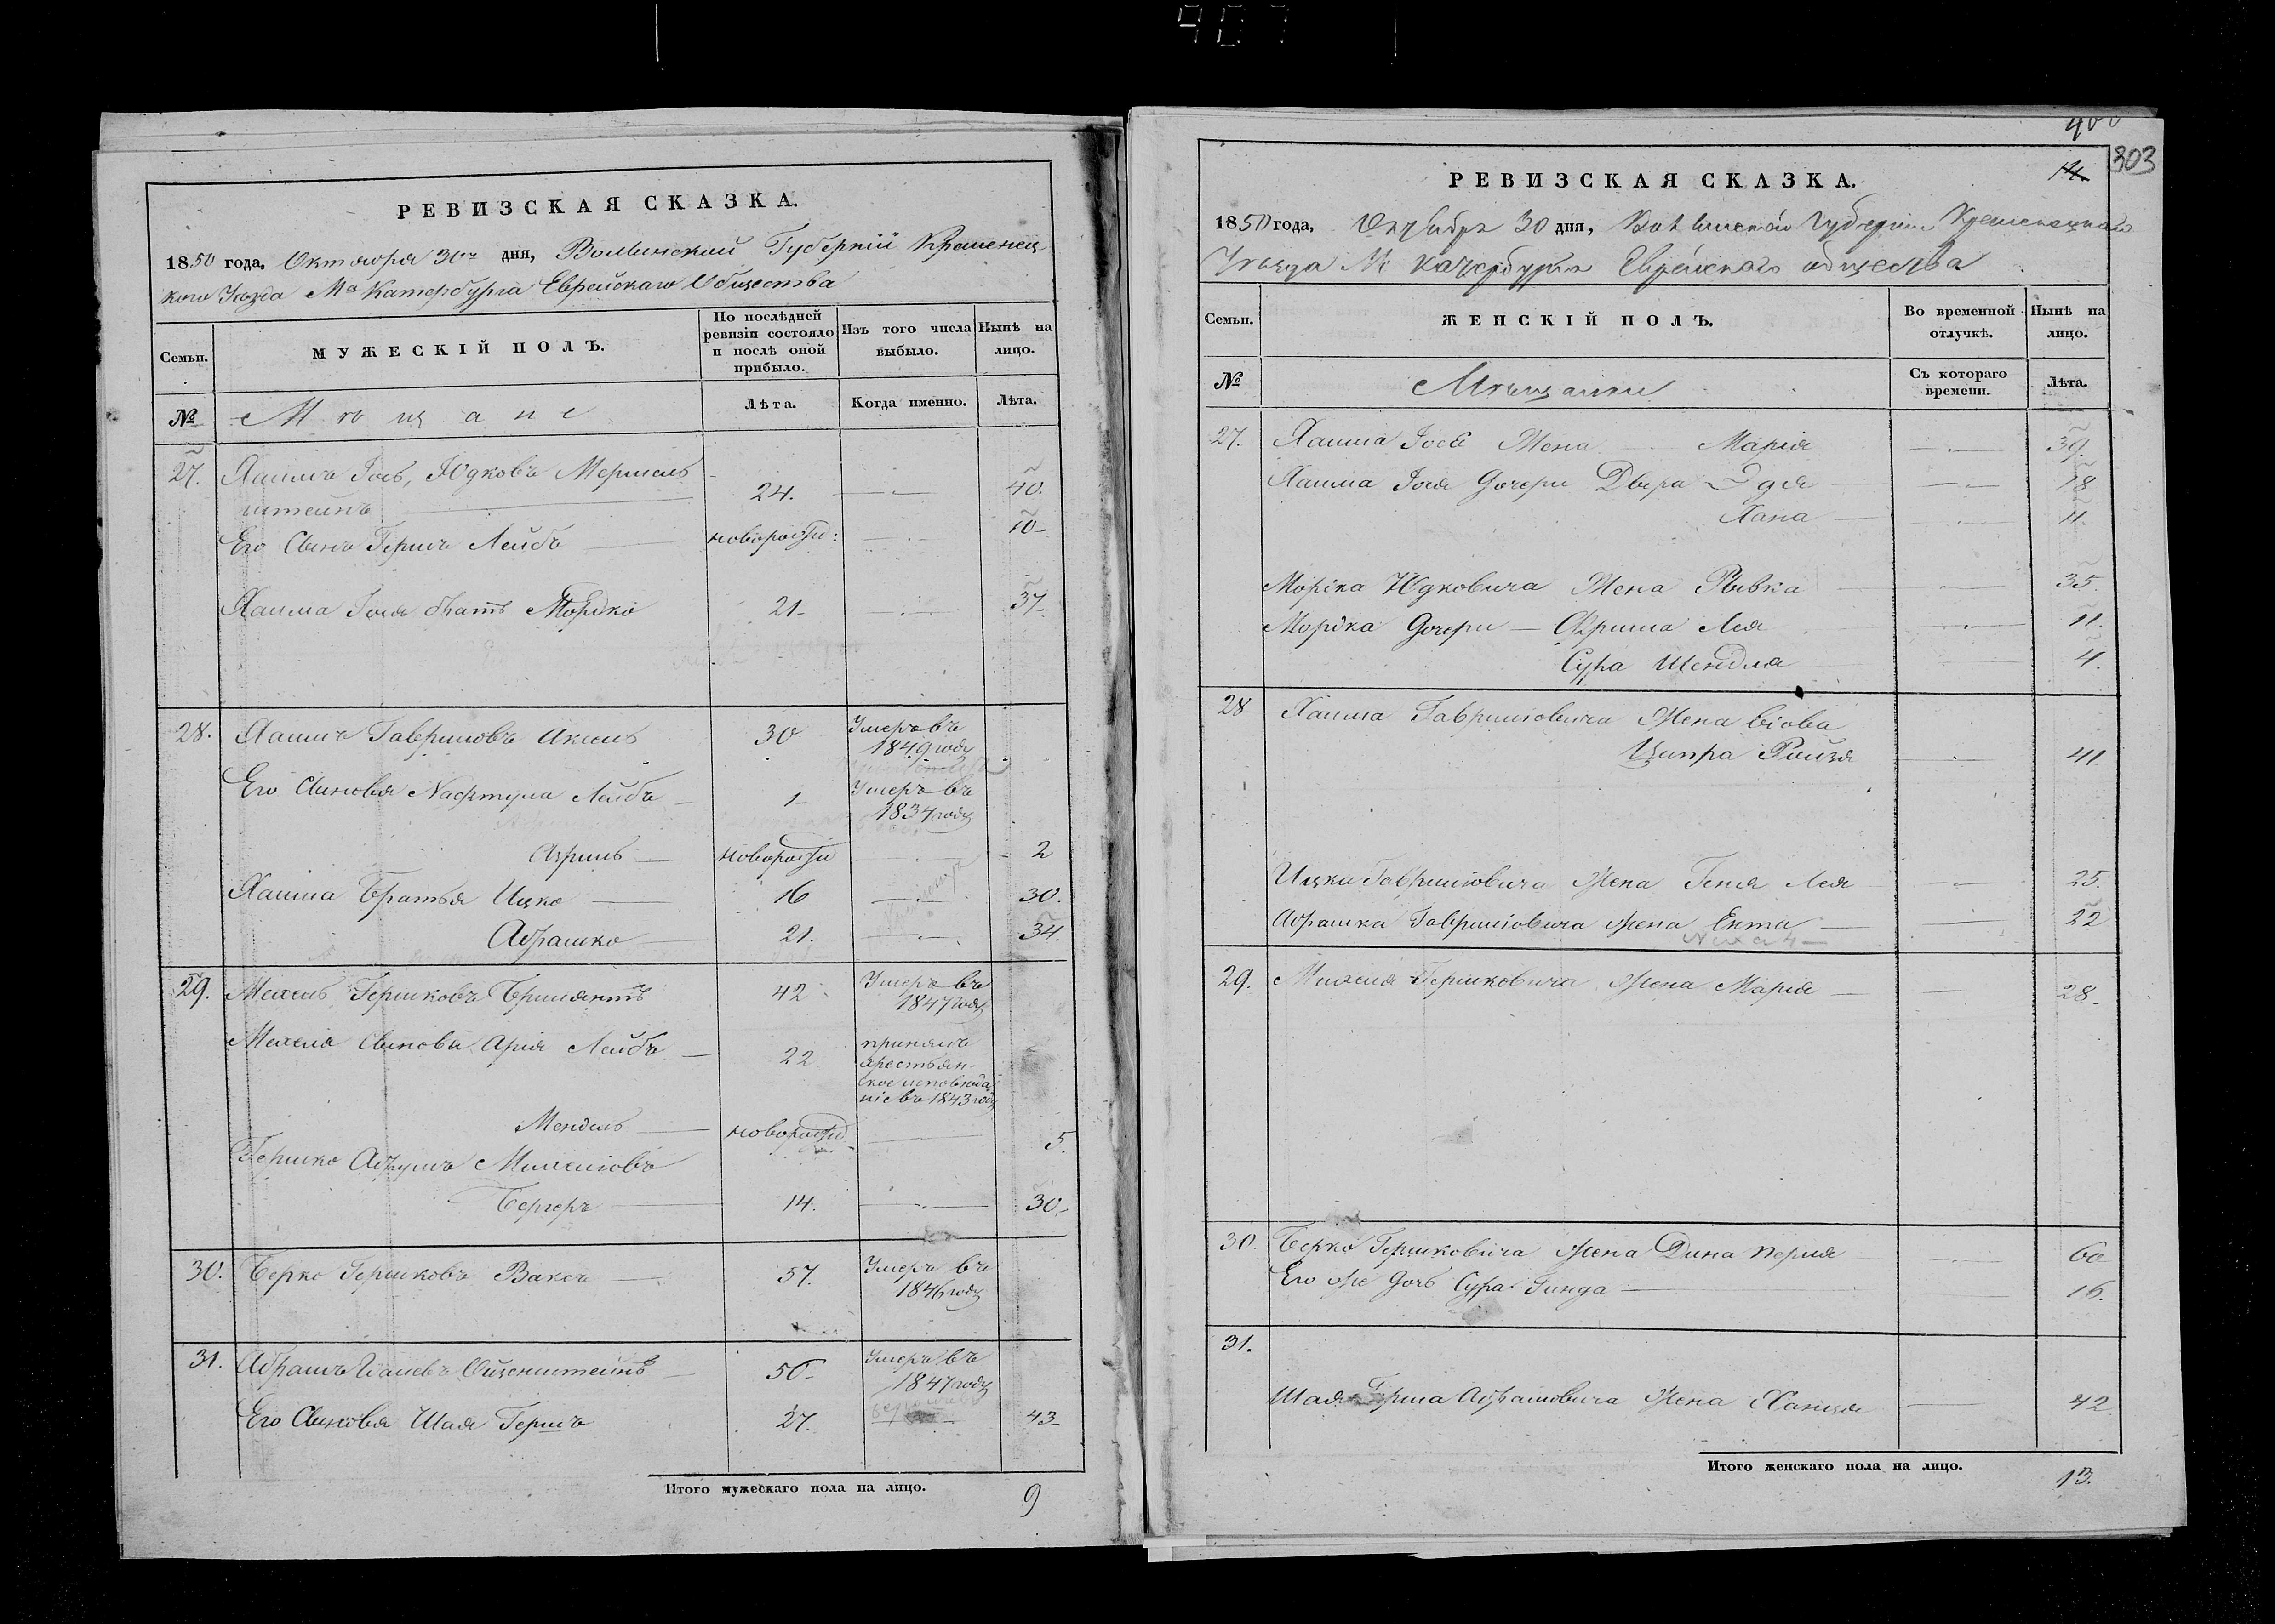 407
РЕВИЗСКАЯ СКАЗКА.
1850 года, Октября 30го дня, Волынской Губерніи Кременец
кого Уѣзда Ма Катербурга Еврейскаго Общества
Семьи.
МУЖЕСКІЙ ПОЛЪ.
По послѣдней ревизіи состояло и послѣ оной прибыло.
Изъ того числа выбыло.
Нынѣ на лицо.
№
Мѣщане
Лѣта.
Когда именно.
Лѣта.
27. Хаимъ Іось, Юдковъ Мернель
штейнъ 24. 40.
Его Сынъ Гершъ Лейбъ новорожд: 10
Хаима Іося братъ Мордко 21 37
28. Хаимъ Гавриловъ 30 Умеръ въ
1849 году
Его Сыновья Нафтула Лейбъ 1 Умеръ въ
1834 году
Азриль новорожд 2
Хаима Братья Ицко 16 30.
Абрашко 21. 34.
29. Михель Гершковъ Брилянтъ 42 Умеръ въ
1847 году
Михеля Сыновья Арія Лейбъ 22 принялъ
хрестьян-
ское исповѣда
ніе въ 1843 году
Мендель новорожд 5.
Гершко Абрумъ Михелювъ
Бергеръ 14. 30.
30. Берко Гершковъ Ваксъ 57. Умеръ въ
1846 году
31. Абрамъ Ойценштейнъ 50 Умеръ въ
1847 году
Его Сыновья Шая Гершъ 27. 43
Итого мужескаго пола на лицо. 9
400
14.
303
РЕВИЗСКАЯ СКАЗКА.
1850 года, Октября 30 дня, Волынской Губерніи Кременецкаго
Уѣзда М Катербурга Еврейскаго общества
Семьи.
ЖЕНСКІЙ ПОЛЪ.
Во временной отлучкѣ.
Нынѣ на лицо.
№
Мѣщанки
Съ котораго времени.
Лѣта.
27. Хаима Іося Жена Марія 39.
Хаима Іося Дочери Двера Эдя 18
Хана 11.
Мордка Юдковича Жена Рывка 35.
Мордка Дочери Фрима Лея 11.
Сура Шендля 4.
28 Хаима Гавриловича Жена вдова
Ципра Ройзя 41
Ицки Гавриловича Жена Геня Лея 25.
Абрашка Гавриловича Жена Ента 22
29. Михеля Гершковича Жена Марія 28.
30. Берко Гершковича Жена Дина Перля 60
Его же Дочь Сура Гинда 16.
31.
Шая Герша Абрамовича Жена Ханця 42
Итого женскаго пола на лицо. 13.